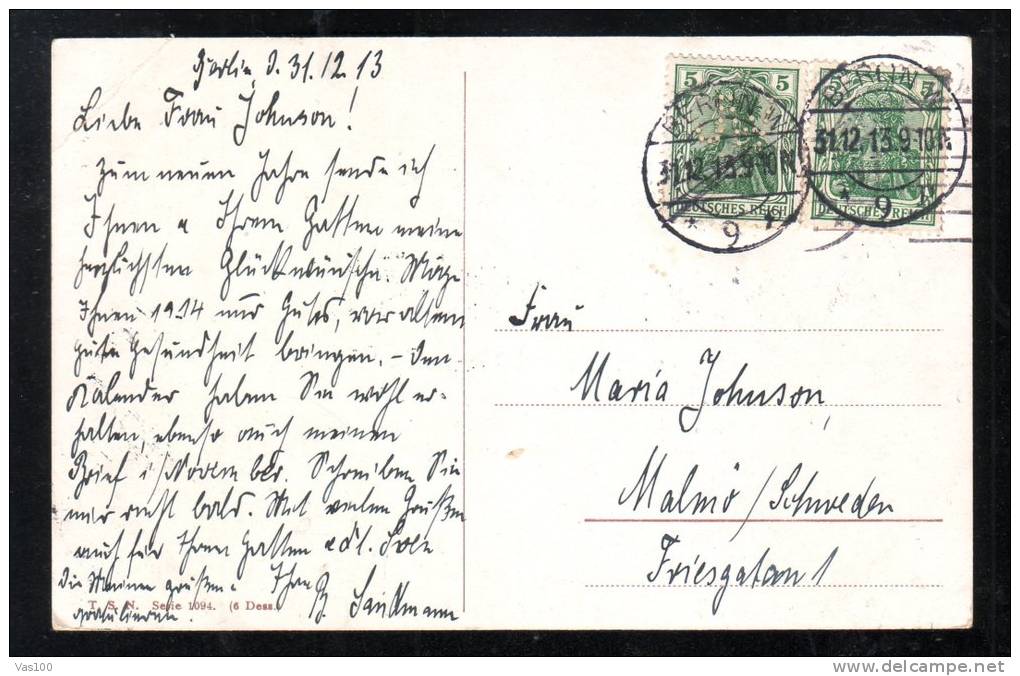 Berlin, d. 31.12.13
Liebe Frau Johnson!
Zum neuen Jahre sende ich
Ihnen u Ihrem Gatten meine
herzlichsten Glückwünsche. Möge
Ihnen 1914 nur Gutes, vor allem
gute Gesundheit bringen. – Den
Kalender haben Sie wohl er-
halten, ebenso auch meinen
Brief i/November. Schreiben Sie
mir recht bald. Mit vielen Grüßen
auch für Ihren Gatten u
Die Meinen grüßen u Ihre
gratulieren. Sandmann
T. S. N. Serie 1094. (6 Dess.
5 5
DEUTSCHES REICH
BERLIN W
31.12.13.9-10N.
* 9
5
DEUTSCHES REICH
BERLIN W
31.12.13.9-10N.
* 9
Frau
Maria Johnson,
Malmö/Schweden
Friesgatan 1
Vas100
www.delcampe.net